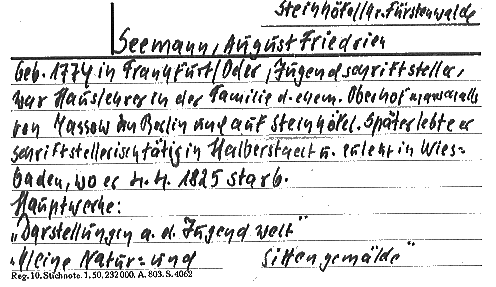 Steinhöfel/Kr. Fürstenwalde
Seemann, August Friedrich
Geb. 1774 in Frankfurt/Oder, Jugendschriftsteller,
war Hauslehrer in der Familie d. ehem. Oberhofmarschalls
von Massow in Berlin und auf Steinhöfel. Später lebte er
schriftstellerisch tätig in Halberstadt u. zuletzt in Wies=
baden, wo er n. n. 1825 starb.
Hauptwerke:
„Darstellungen a. d. Jugendwelt"
„Kleine Natur= und Sittengemälde"
Reg. 10. Stichnote. 1, 50, 232 000. A. 803. S. 4062